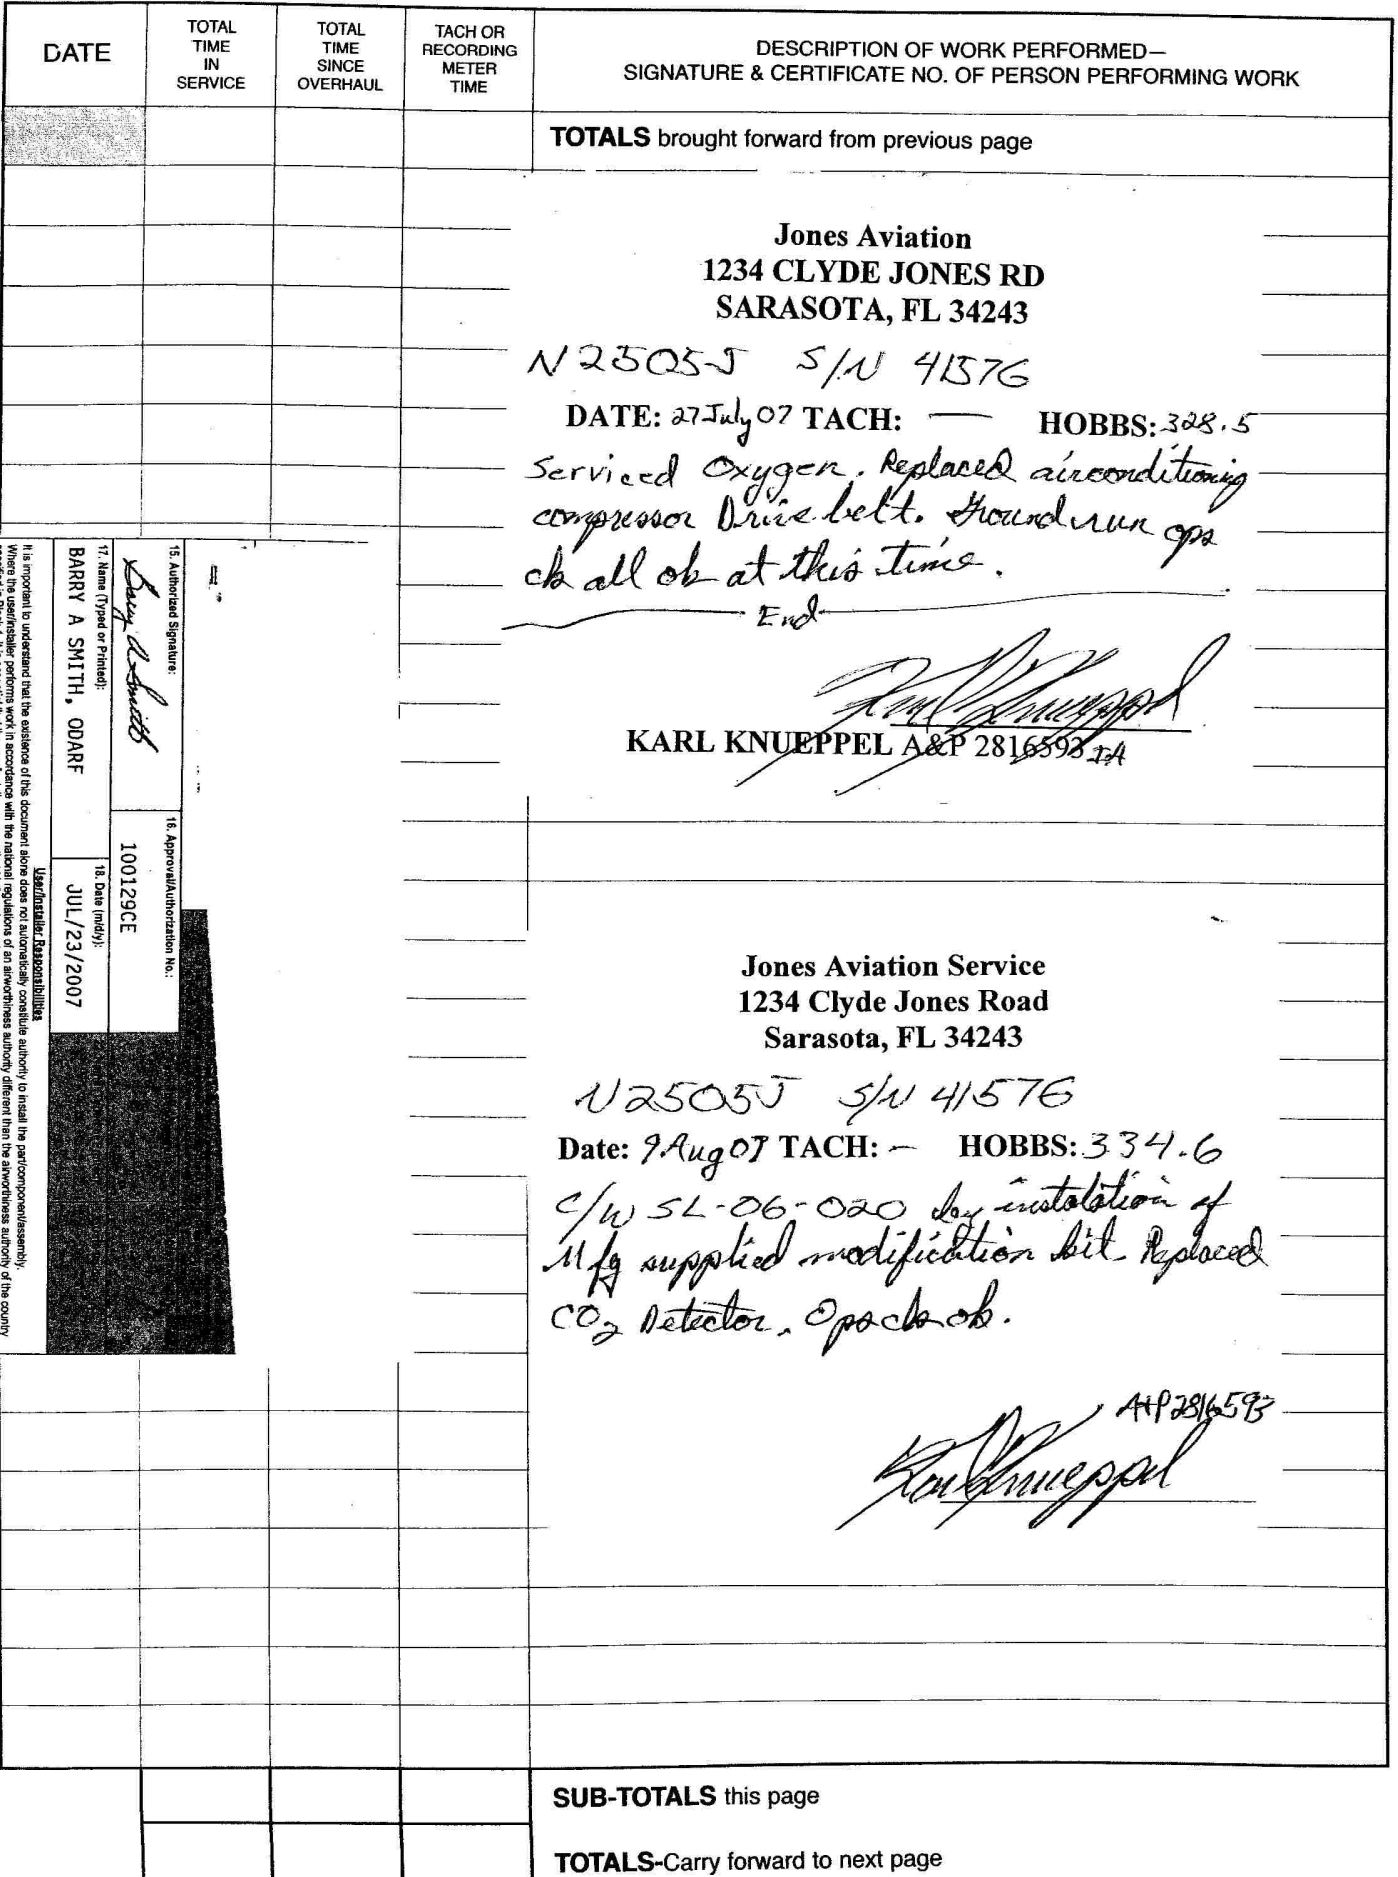 DATE
TOTAL
TIME
IN
SERVICE
TOTAL
TIME
SINCE
OVERHAUL
TACH OR
RECORDING
METER
TIME
DESCRIPTION OF WORK PERFORMED—
SIGNATURE & CERTIFICATE NO. OF PERSON PERFORMING WORK
TOTALS brought forward from previous page
Jones Aviation
1234 CLYDE JONES RD
SARASOTA, FL 34243
N2505J S/N 41576
DATE: 27 July 07 TACH: — HOBBS: 328.5
Serviced Oxygen. Replaced airconditioning
compressor Drive belt. Ground run ops
ck all ok at this time.
End
Karl Knueppel
KARL KNUEPPEL A&P 2816593 IA
15. Authorized Signature:
Barry A Smith
16. Approval/Authorization No.:
100129CE
17. Name (Typed or Printed):
BARRY A SMITH, ODARF
18. Date (m/d/y):
JUL/23/2007
User/Installer Responsibilities
It is important to understand that the existence of this document alone does not automatically constitute authority to install the part/component/assembly.
Where the user/installer performs work in accordance with the national regulations of an airworthiness authority different than the airworthiness authority of the country
Jones Aviation Service
1234 Clyde Jones Road
Sarasota, FL 34243
N2505J S/N 41576
Date: 9 Aug 07 TACH: – HOBBS: 334.6
C/W SL-06-020 by instalation of
Mfg supplied modification kit Replaced
CO2 Detector. Ops ck ok.
A+P 2816593
Karl Knueppel
SUB-TOTALS this page
TOTALS-Carry forward to next page